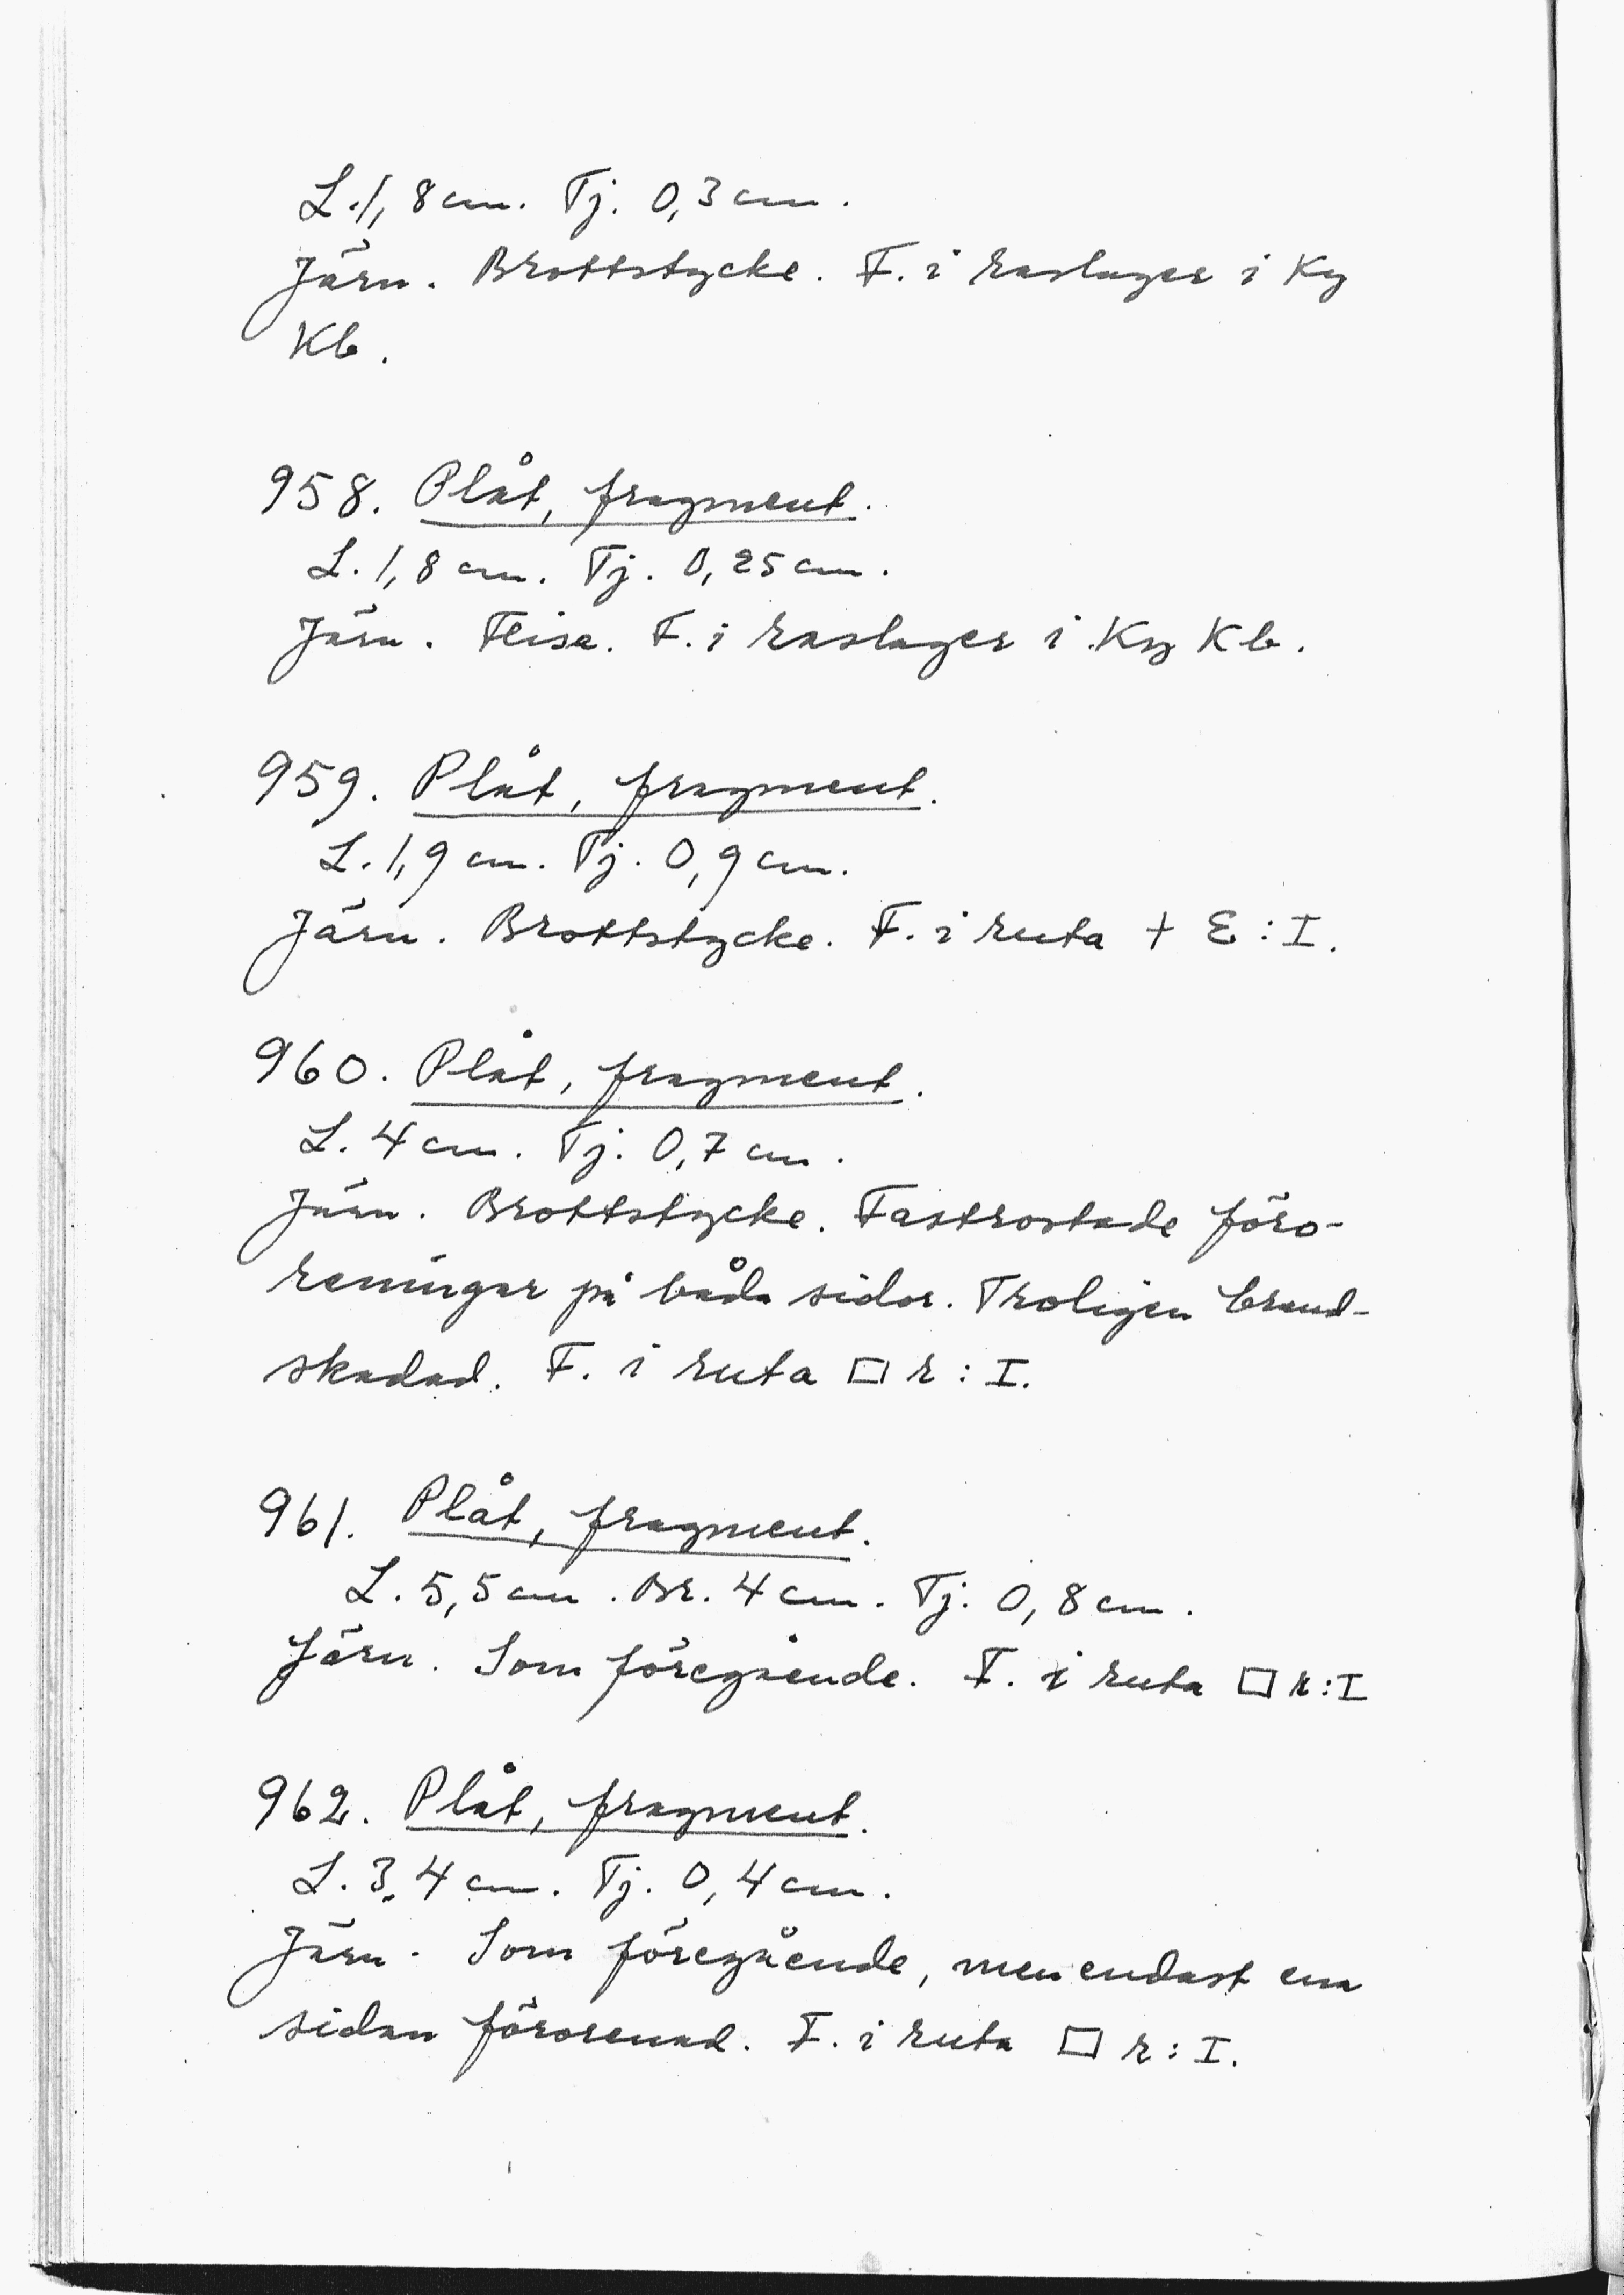 L. 1,8 cm. Tj. 0,3 cm.
Järn. Brottstycke. F. i raslager i Ky
Kb.
958. Plåt, fragment.
L. 1,8 cm. Tj. 0,25 cm.
Järn. Flisa. F. i raslager i Ky Kb.
959. Plåt, fragment.
L. 1,9 cm. Tj. 0,9 cm.
Järn. Brottstycke. F. i ruta + E : I.
960. Plåt, fragment.
L. 4 cm. Tj. 0,7 cm.
Järn. Brottstycke. Fastrostade föro-
reningar på båda sidor. Troligen brand-
skadad. F. i ruta □ r : I.
961. Plåt, fragment.
L. 5,5 cm. Br. 4 cm. Tj. 0,8 cm.
Järn. Som föregående. F. i ruta □ r : I
962. Plåt, fragment.
L. 3,4 cm. Tj. 0,4 cm.
Järn. Som föregående, men endast ena
sidan förorenad. F. i ruta □ r : I.